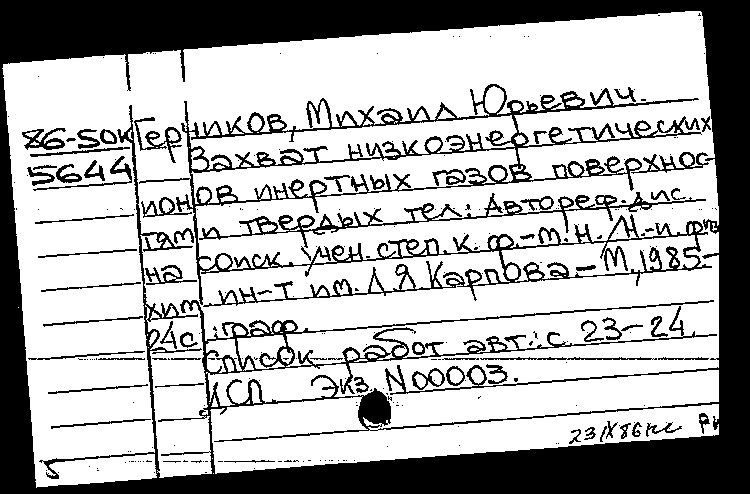 86-50к Герчиков, Михаил Юрьевич.
5644 Захват низкоэнергетических
ионов инертных газов поверхнос-
тями твердых тел: Автореф. дис.
на соиск. учен. степ. к. ф.-м. н. /Н.-и. физ
хим. ин-т им. Л.Я. Карпова.- М., 1985.-
24с.: граф.
Список работ авт.: с. 23-24.
ДСП. Экз. N00003.